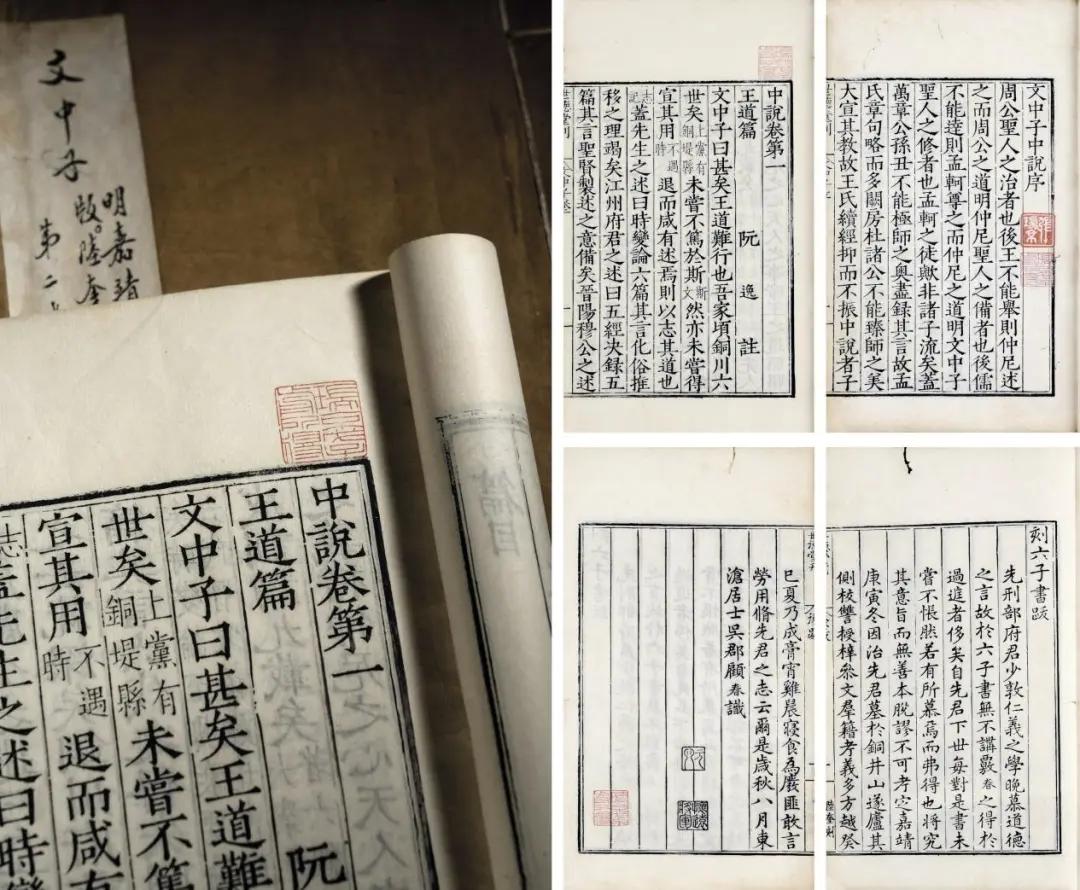 文中子
明嘉靖
版。陸奎
第二
中說卷第一
王道篇
阮
文中子曰甚矣王道難
世矣上黨有銅堤縣未嘗不篤
宣其用不遇時退而咸有
志蓋先生之述曰時變
篇目
中說卷第一
王道篇 阮 逸 註
文中子曰甚矣王道難行也吾家頃銅川六
世矣上黨有銅堤縣未嘗不篤於斯斯文然亦未嘗得
宣其用不遇時退而咸有述焉則以志其道也
志記蓋先生之述曰時變論六篇其言化俗推
移之理竭矣江州府君之述曰五經决錄五
篇其言聖賢製述之意備矣晉陽穆公之述
世德堂刊
文中子中說序
周公聖人之治者也後王不能舉則仲尼述
之而周公之道明仲尼聖人之備者也後儒
不能達則孟軻尊之而仲尼之道明文中子
聖人之修者也孟軻之徒歟非諸子流矣蓋
萬章公孫丑不能極師之奧盡録其言故孟
氏章句略而多闕房杜諸公不能臻師之美
大宣其教故王氏續經抑而不振中說者子
世德堂刊
刻六子書跋
先刑部府君少敦仁義之學晚慕道德
之言故於六子書無不講斁春之得於
過庭者侈矣自先君下世每對是書未
嘗不悵然若有所慕焉而弗得也將究
其意旨而無善本脫謬不可考定嘉靖
庚寅冬因治先君墓於銅井山遂廬其
側校讐授梓參文羣籍考義多方越癸
巳夏乃成膏宵雞晨寢食為廢匪敢言
勞用脩先君之志云爾是歲秋八月東
滄居士吳郡顧春識